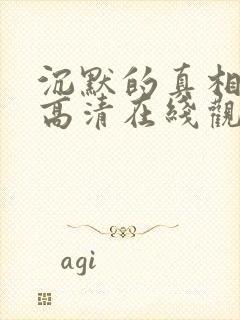 沉默的真相
高清在綫觀
agi